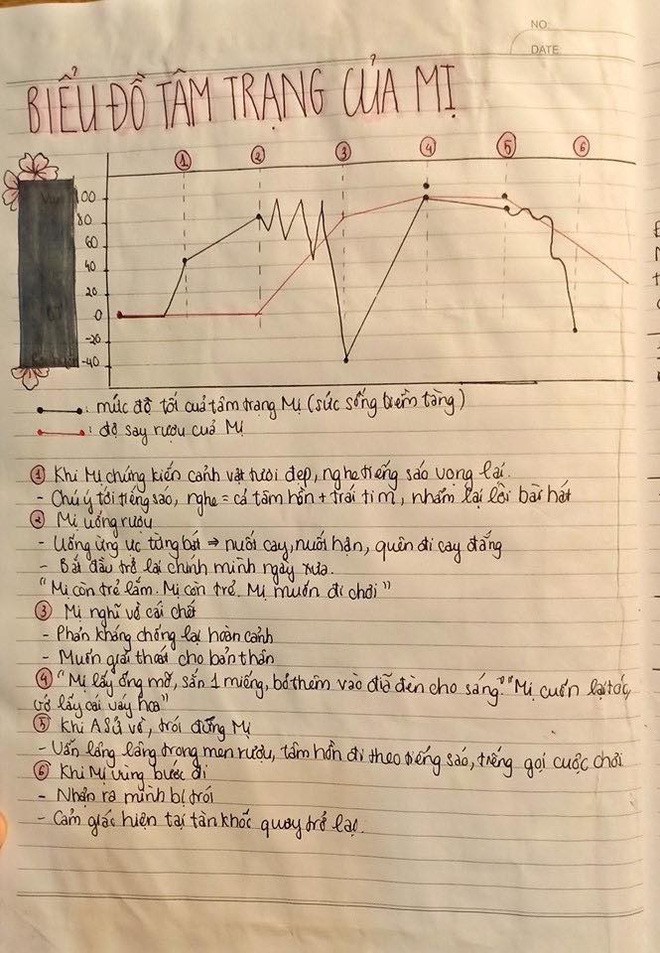 NO:
DATE:
BIỂU ĐỒ TÂM TRẠNG CỦA MỊ
1 2 3 4 5 6
100
80
60
40
20
0
-20
-40
: mức độ tối của tâm trạng Mị (sức sống tiềm tàng)
: độ say rượu của Mị
① Khi Mị chứng kiến cảnh vật tươi đẹp, nghe tiếng sáo vọng lại.
- Chú ý tới tiếng sáo, nghe = cả tâm hồn + trái tim, nhẩm lại lời bài hát
② Mị uống rượu
- Uống ừng ực từng bát ⇒ nuốt cay, nuốt hận, quên đi cay đắng
- Bắt đầu trở lại chính mình ngày xưa.
"Mị còn trẻ lắm. Mị còn trẻ. Mị muốn đi chơi"
③ Mị nghĩ về cái chết
- Phản kháng chống lại hoàn cảnh
- Muốn giải thoát cho bản thân
④ "Mị lấy ống mỡ, sắn 1 miếng, bỏ thêm vào đĩa đèn cho sáng" "Mị cuốn lại tóc,
với lấy cái váy hoa"
⑤ Khi A Sử về, trói đứng Mị
- Vẫn lâng lâng trong men rượu, tâm hồn đi theo tiếng sáo, tiếng gọi cuộc chơi
⑥ Khi Mị vùng bước đi
- Nhận ra mình bị trói
- Cảm giác hiện tại tàn khốc quay trở lại.